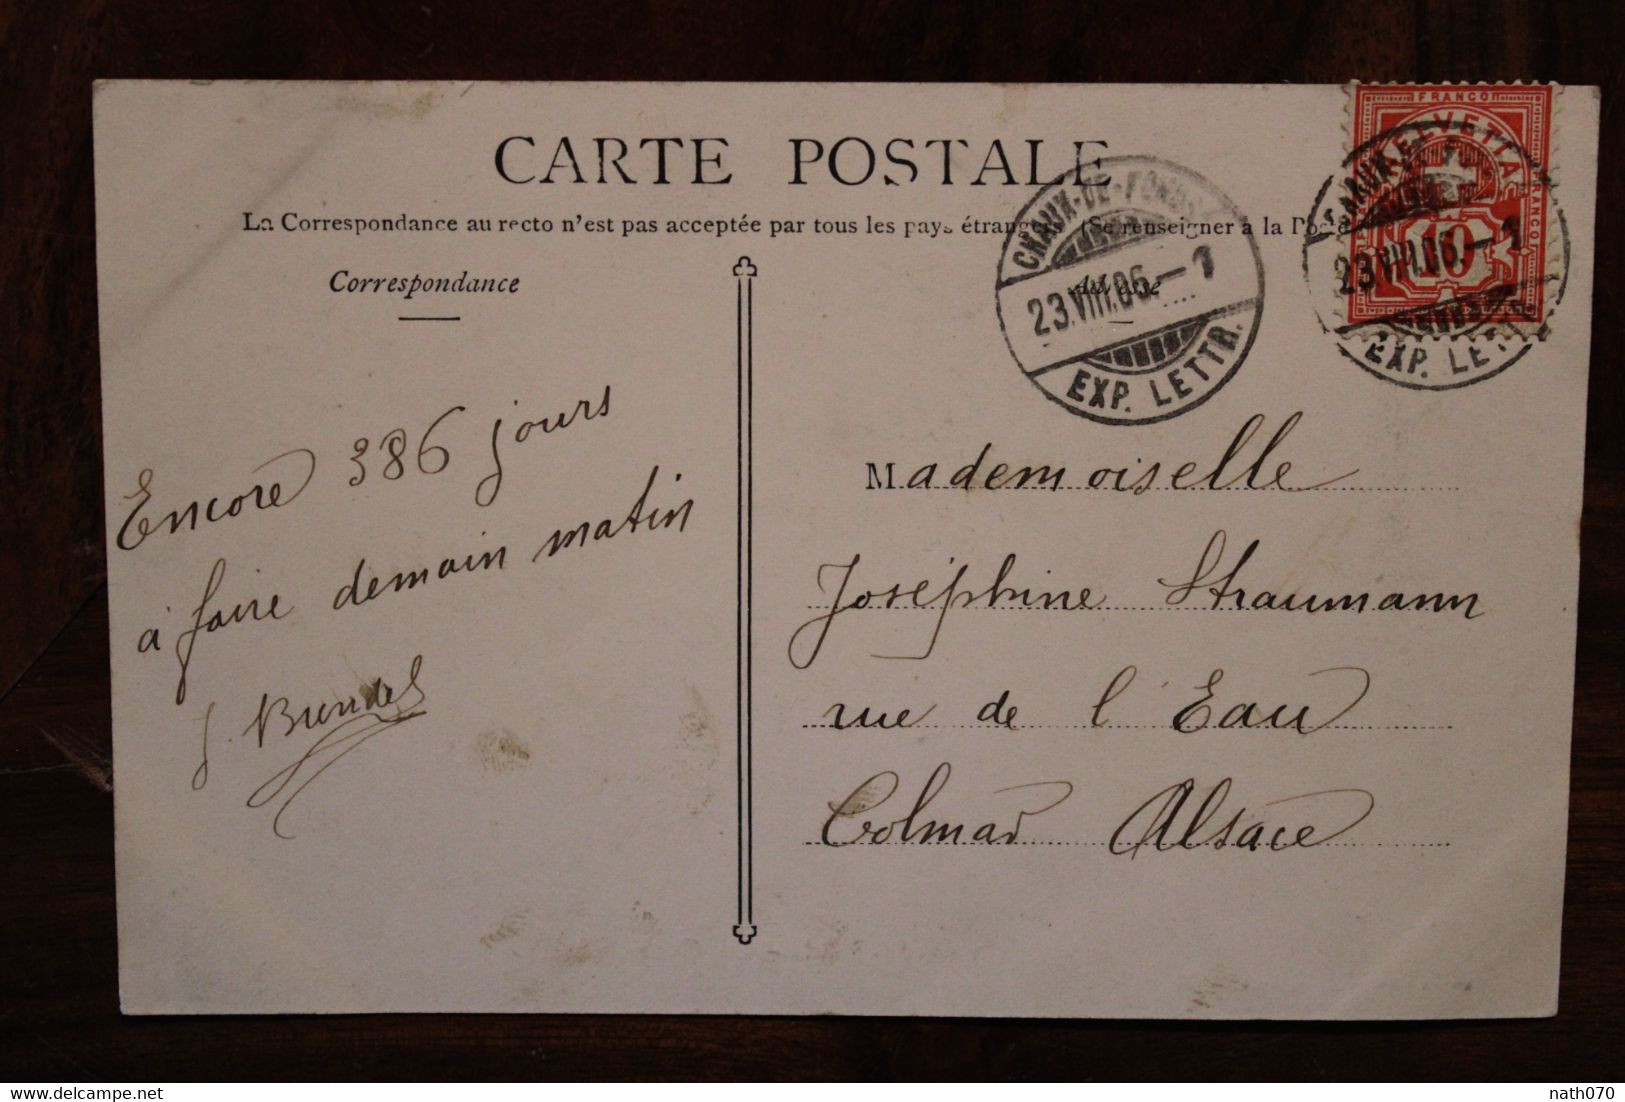 CARTE POSTALE
La Correspondance au recto n'est pas acceptée par tous les pays étrangers (Se renseigner à la Poste
Correspondance
CHAUX-DE-FONDS
23.VIII.06.–1
EXP. LETTR.
FRANCO
HELVETIA
FRANCO
10
CHAUX-DE-FONDS
23.VIII.06.–1
EXP. LETTR.
Encore 386 jours
à faire demain matin
Mademoiselle
Joséphine Straumann
rue de l'Eau
Colmar Alsace
delcampe.net
nath070